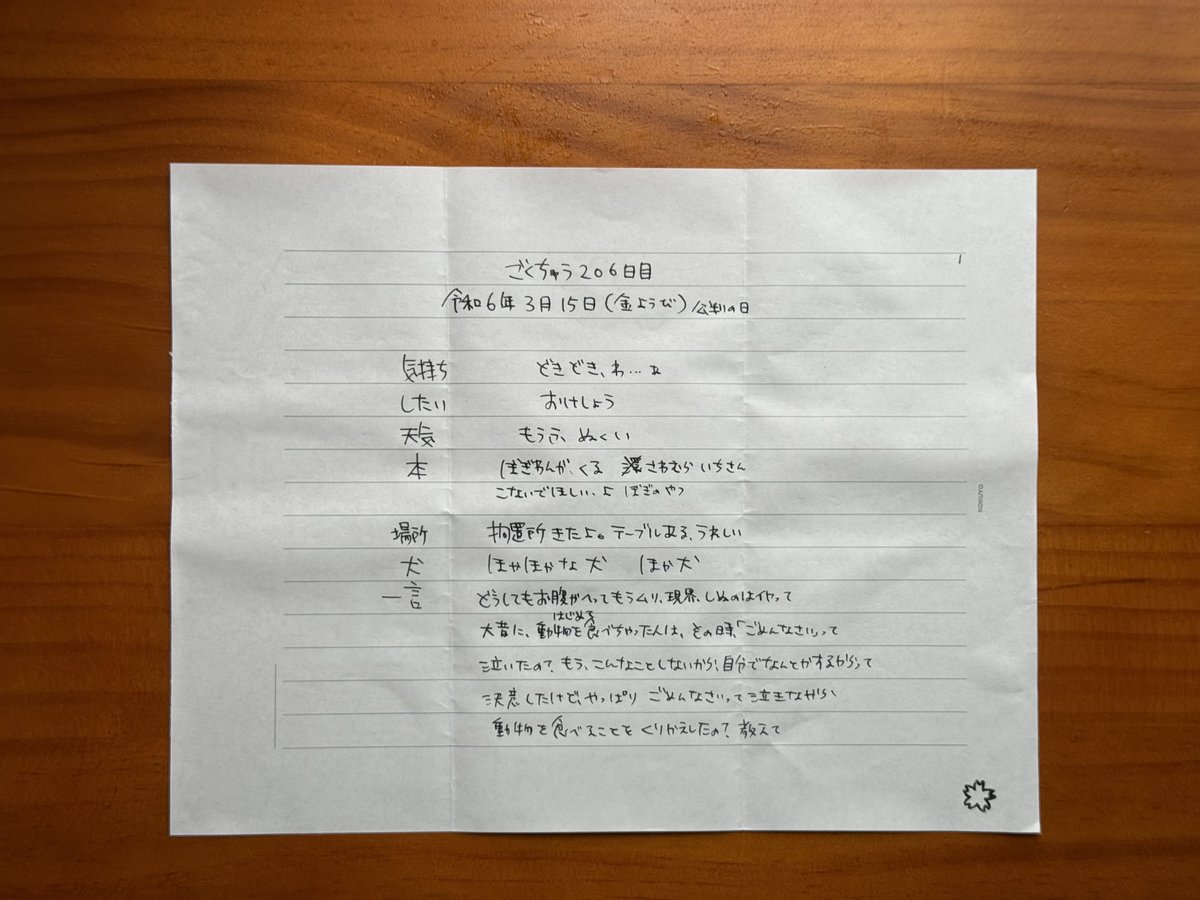 ごくちゅう206日目
1
令和6年3月15日(金ようび)公判の日
気持ち どきどき、わ…ぁ
したい おけしょう
天気 もうふ、ぬくい
本 ぼぎわんが、くる さわむらいちさん
こないでほしい、よ ぼぎのやつ
KOKUYO
場所 拘置所きたよ。テーブルある、うれしい
犬 ほかほかな犬 ほか犬
一言 どうしてもお腹がへってもうムリ、現界、しぬのはイヤって
はじめる
大昔に、動物を食べちゃった人は、その日「ごめんなさい」って
泣いたの?もう、こんなことしないから、自分でなんとかするからって
決意したけど、やっぱりごめんなさいって泣きながら、
動物を食べることをくりかえしたの?教えて